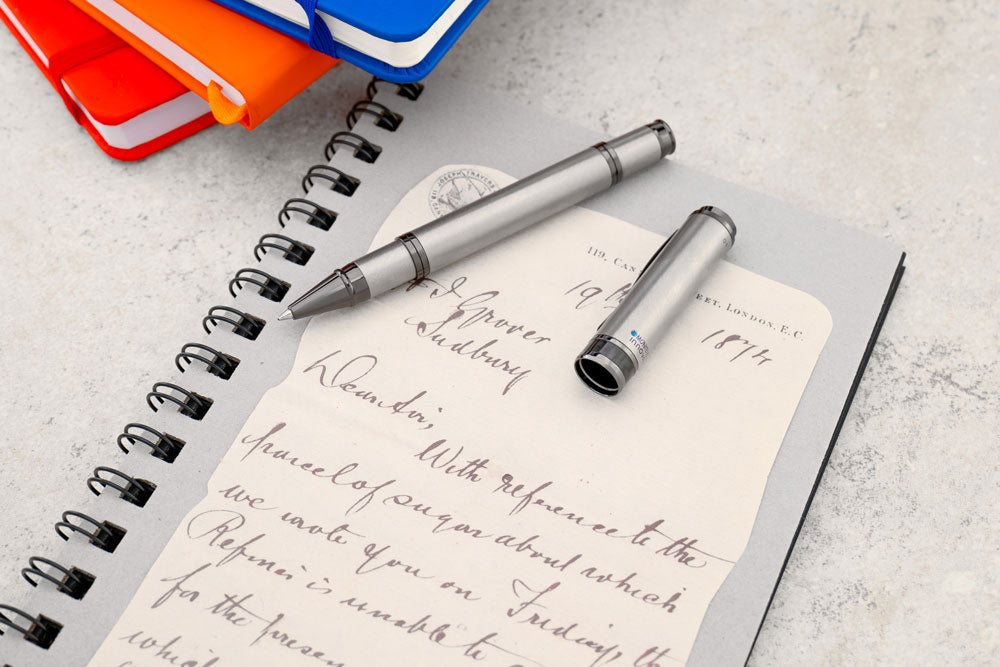 JOSEPH TRAVERS
119, CAN EET, LONDON, E.C.
19th 1874
Grover
Sudbury
Dear Sir,
With reference to the
parcel of sugar about which
we wrote you on Friday, th
Refiner is unable to
for the presen
which